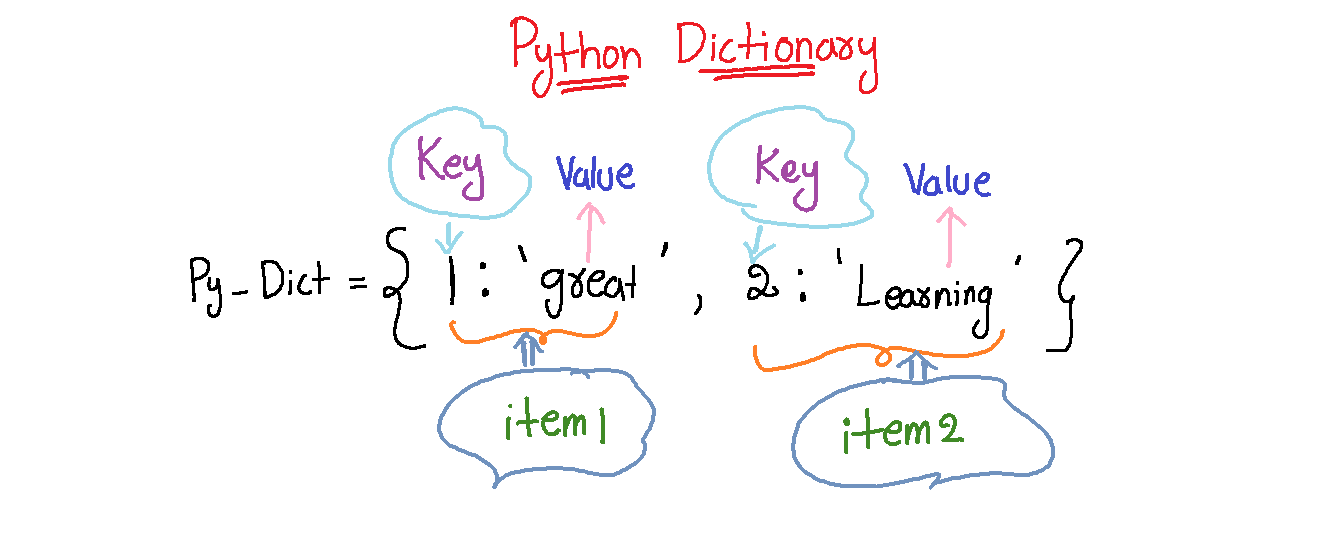 Python Dictionary
Key Value Key Value
Py_Dict = { 1 : 'great' , 2 : 'Learning' }
item 1 item 2